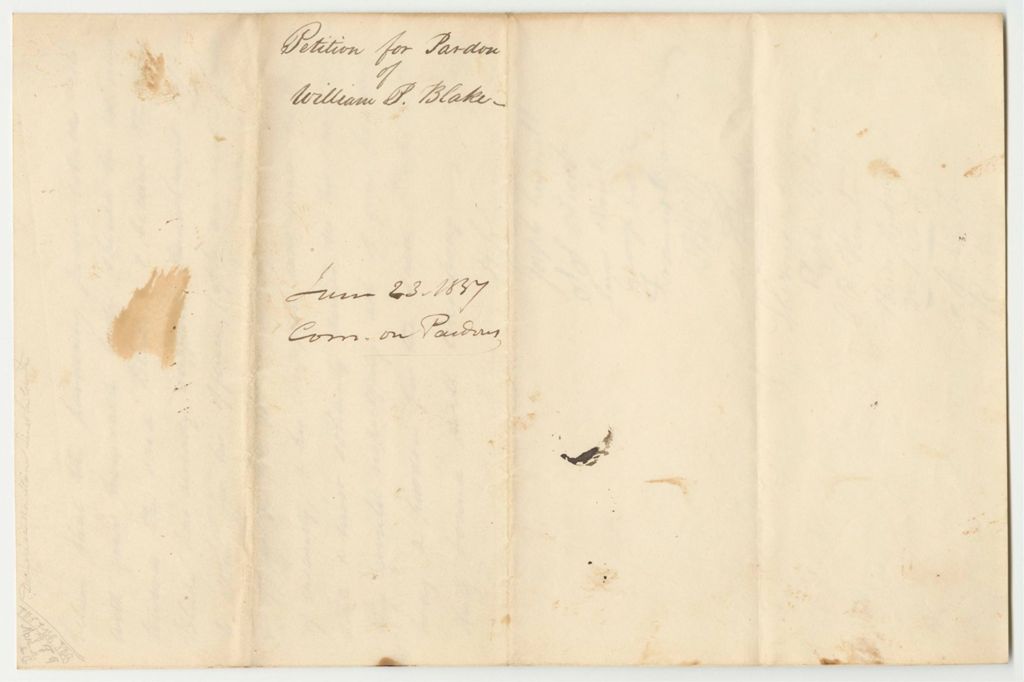 Petition for Pardon
of
William P. Blake
June 23. 1837
Com. on Pardons